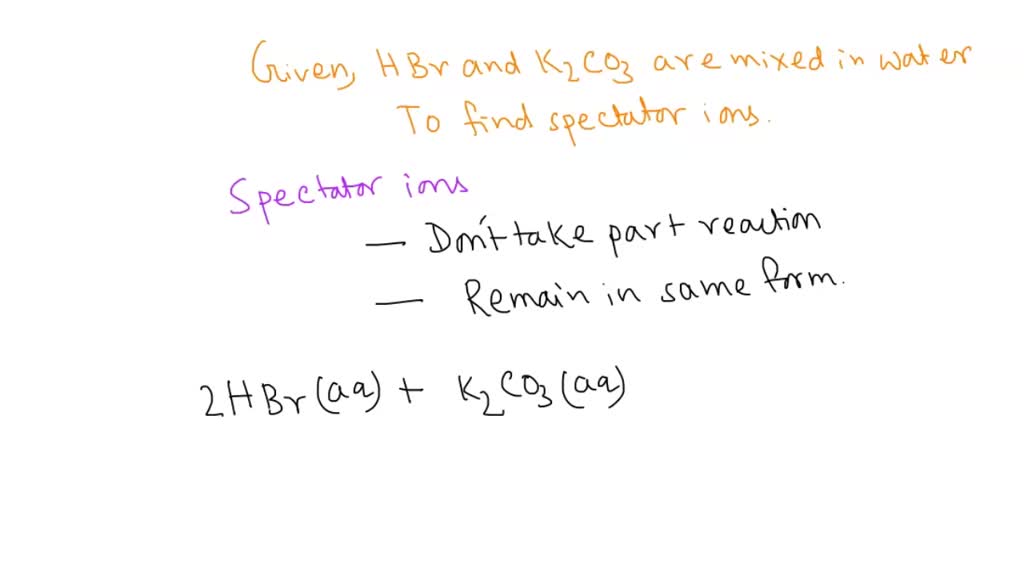 Given, HBr and K2CO3 are mixed in water
To find spectator ions.
Spectator ions
— Don't take part reaction
— Remain in same form.
2HBr(aq) + K2CO3(aq)